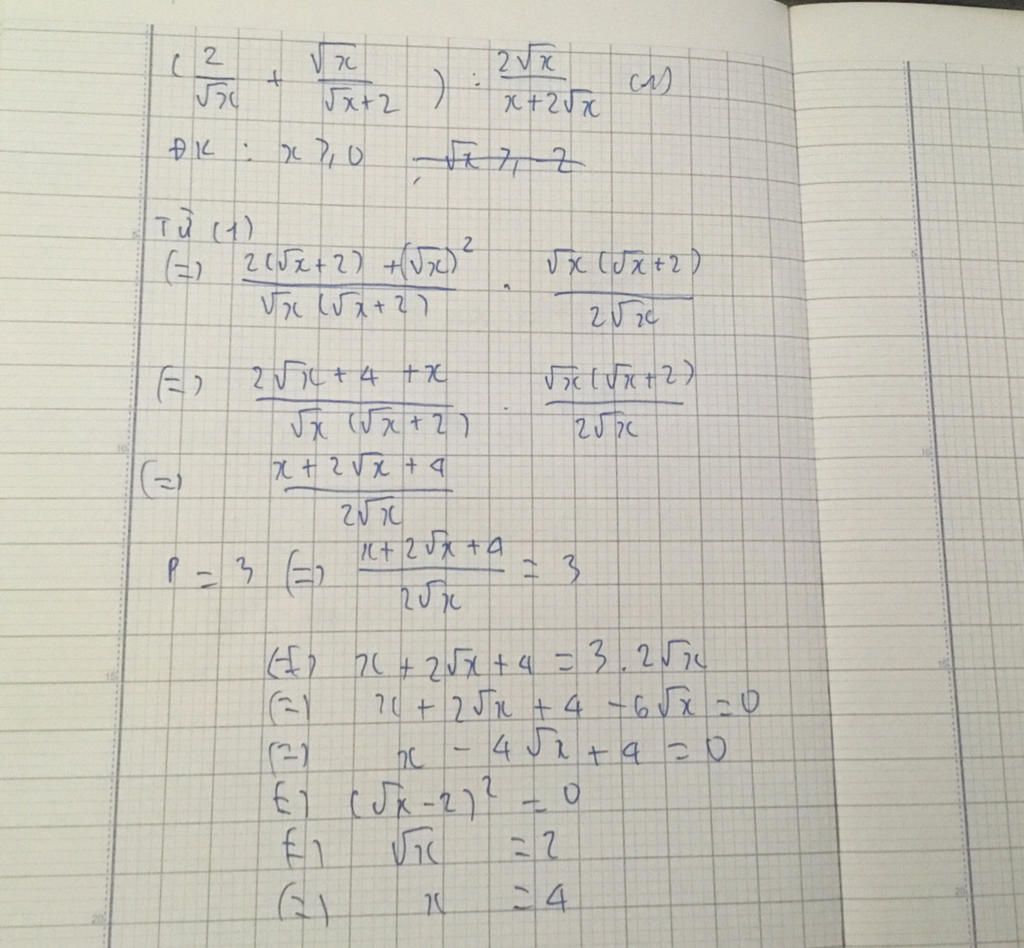 ( 2/√x + √x/(√x+2) ) : 2√x/(x+2√x) (1)
ĐK : x ≥ 0
Từ (1)
(=) (2(√x+2) + (√x)²)/(√x(√x+2)) . √x(√x+2)/(2√x)
(=) (2√x + 4 + x)/(√x(√x+2)) . √x(√x+2)/(2√x)
(=) (x + 2√x + 4)/(2√x)
P = 3 (=) (x + 2√x + 4)/(2√x) = 3
(=) x + 2√x + 4 = 3.2√x
(=) x + 2√x + 4 - 6√x = 0
(=) x - 4√x + 4 = 0
(=) (√x - 2)² = 0
(=) √x = 2
(=) x = 4